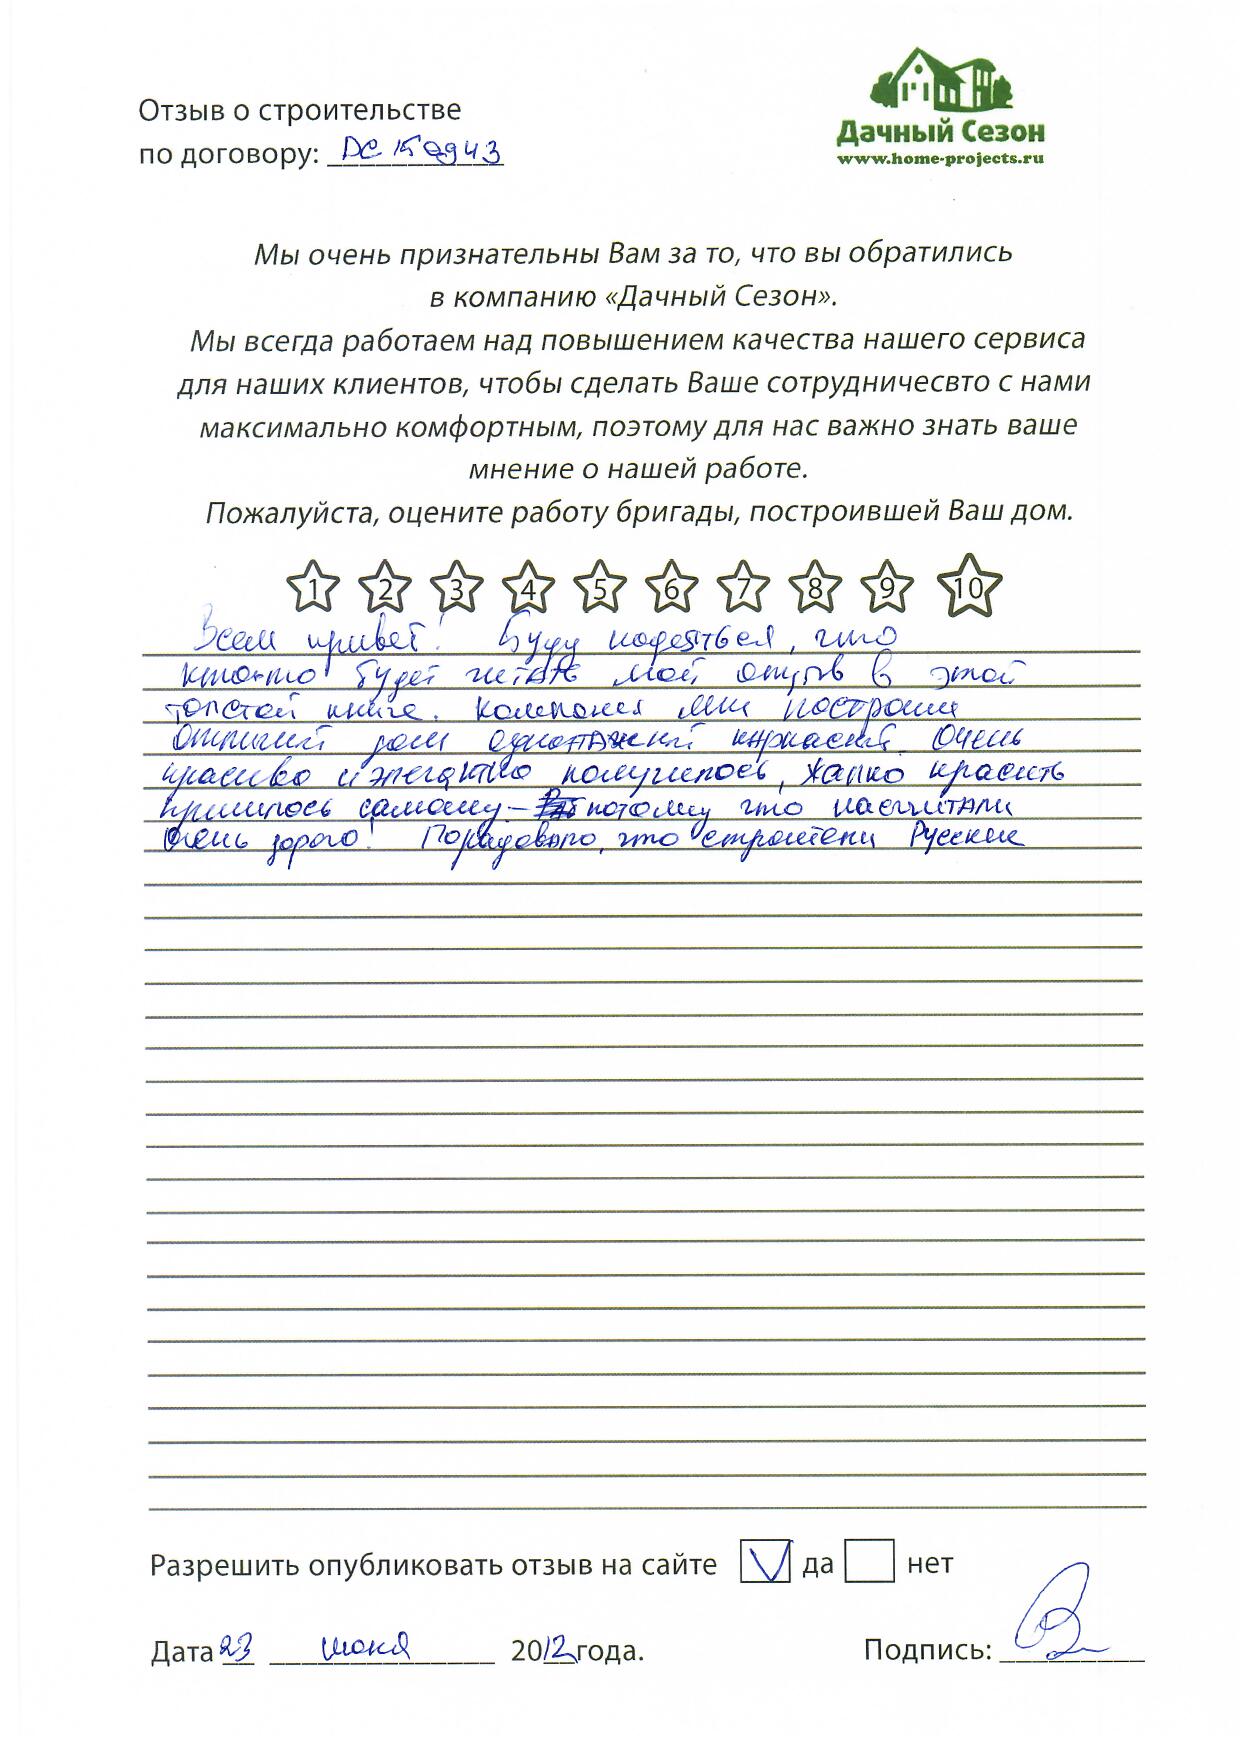 Отзыв о строительстве
по договору: DC
Дачный Сезон
www.home-projects.ru
Мы очень признательны Вам за то, что вы обратились
в компанию «Дачный Сезон».
Мы всегда работаем над повышением качества нашего сервиса
для наших клиентов, чтобы сделать Ваше сотрудничесвто с нами
максимально комфортным, поэтому для нас важно знать ваше
мнение о нашей работе.
Пожалуйста, оцените работу бригады, построившей Ваш дом.
1 2 3 4 5 6 7 8 9 10
Всем привет! Буду надеяться, что
кто-то будет читать мой отзыв в этой
толстой книге. Компания мне построила
отличный дом одноэтажный каркасный. Очень
красиво и элегантно получилось, жалко красить
пришлось самому - потому что насчитали
очень дорого! Порадовало, что строители Русские
Разрешить опубликовать отзыв на сайте V да нет
Дата 23 июня 2012 года. Подпись: